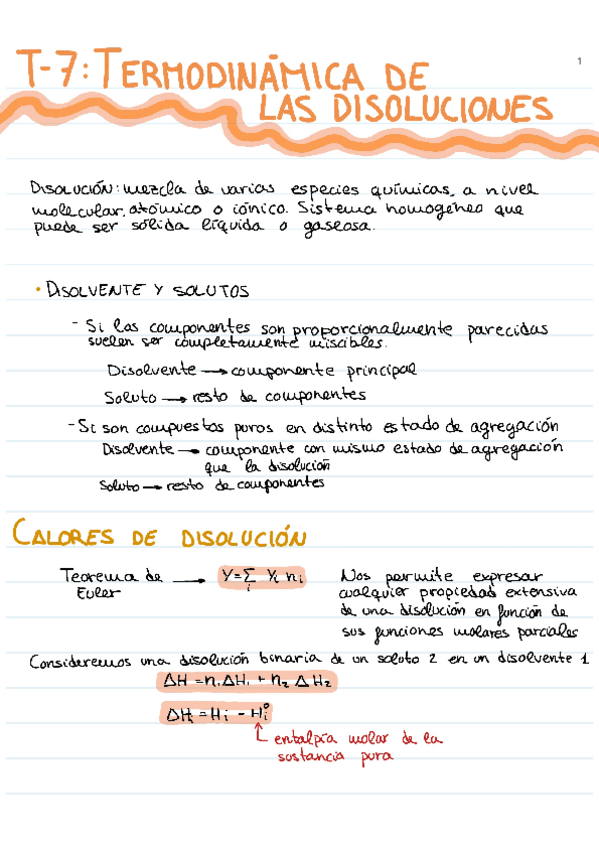 1
T-7: TERMODINÁMICA DE
LAS DISOLUCIONES
DISOLUCIÓN: mezcla de varias especies químicas, a nivel
molecular, atómico o iónico. Sistema homogéneo que
puede ser sólida líquida o gaseosa.
• DISOLVENTE Y SOLUTOS
- Si los componentes son proporcionalmente parecidas
suelen ser completamente miscibles.
Disolvente → componente principal
Soluto → resto de componentes
- Si son compuestos puros en distinto estado de agregación
Disolvente → componente con mismo estado de agregación
que la disolución
Soluto → resto de componentes
CALORES DE DISOLUCIÓN
Teorema de Euler → Y = Σi Yi ni
Nos permite expresar
cualquier propiedad extensiva
de una disolución en función de
sus funciones molares parciales
Consideremos una disolución binaria de un soluto 2 en un disolvente 1
ΔH = n1 ΔH1 + n2 ΔH2
ΔHi = Hi - Hi°
entalpía molar de la
sustancia pura